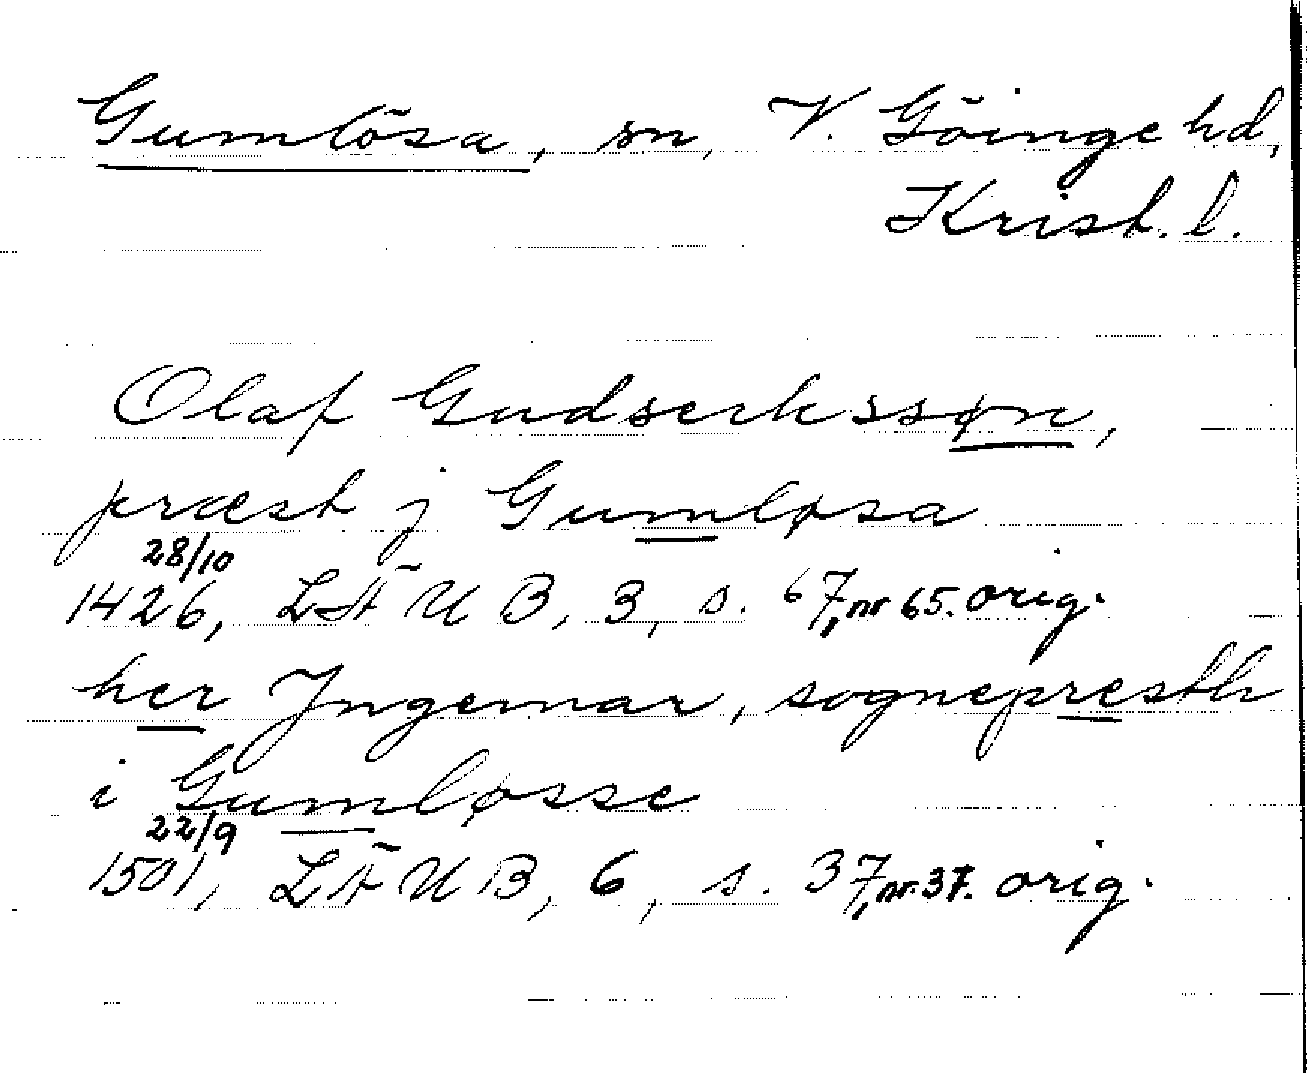 Gumlösa, sn, V. Göinge hd,
Krist. l.
Olaf Gudserkssøn,
præst j Gumløsa
28/10
1426, LÄUB, 3, s. 67, nr 65. orig.
her Jngemar, sognepresth
i Gumløsse
22/9
1501, LÄUB, 6, s. 37, nr. 37. orig.